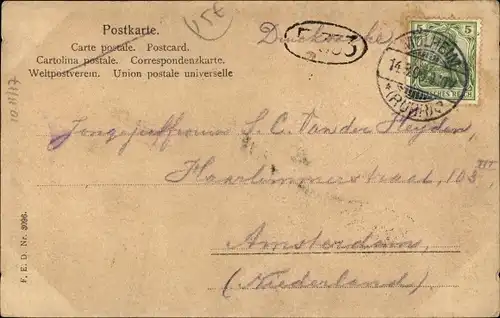 Postkarte.
Carte postale. Postcard.
Cartolina postale. Correspondenzkarte.
Weltpostverein. Union postale universelle
15€
Drucksache
5
5
MÜLHEIM
14.3.
(RUHR)
DEUTSCHES REICH
Jongejuffrouw S. C. Van der Heyden,
Haarlemmerstraat, 103 III
Amsterdam,
(Niederland)
F. E. D. Nr. 3096.